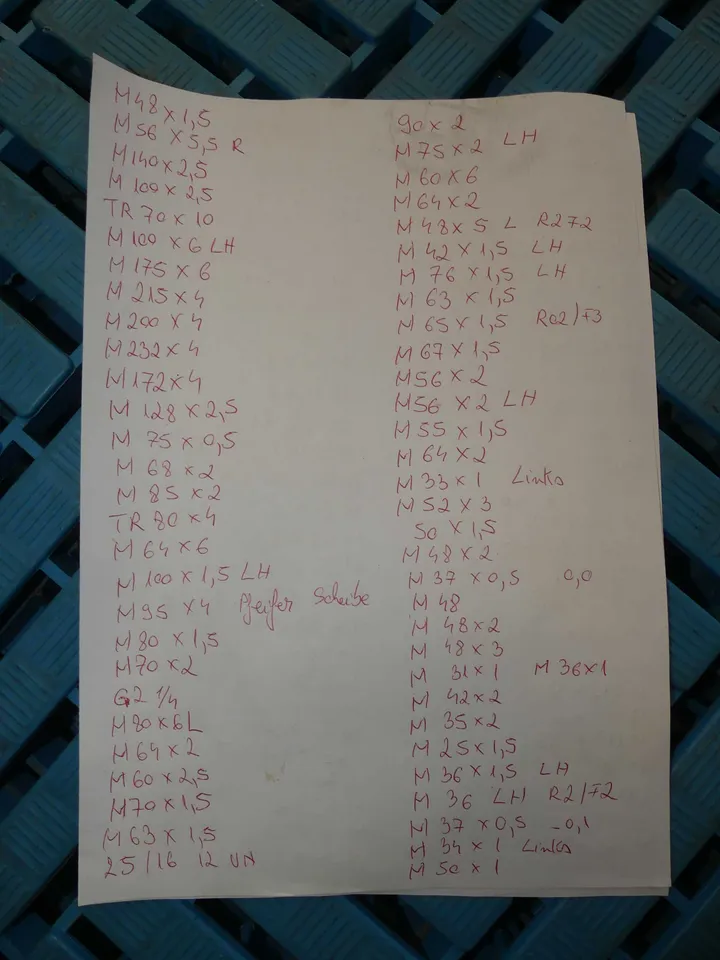 M48 x 1,5
M56 x 5,5 R
M140 x 2,5
M 100 x 2,5
TR 70 x 10
M100 x 6 LH
M 175 x 6
M 215 x 4
M 200 x 4
M 232 x 4
M 172 x 4
M 128 x 2,5
M 75 x 0,5
M 68 x 2
M 85 x 2
TR 80 x 4
M 64 x 6
M 100 x 1,5 LH
M 95 x 4 Pfeifer Scheibe
M 80 x 1,5
M70 x 2
G2 1/4
M 80 x 6 L
M 64 x 2
M 60 x 2,5
M70 x 1,5
M 63 x 1,5
25/16 12 UN
90 x 2
M 75 x 2 LH
M 60 x 6
M 64 x 2
M 48 x 5 L R2F2
M 42 x 1,5 LH
M 76 x 1,5 LH
M 63 x 1,5
M 65 x 1,5 R02/F3
M 67 x 1,5
M56 x 2
M56 x 2 LH
M 55 x 1,5
M 64 x 2
M 33 x 1 Links
M 52 x 3
50 x 1,5
M 48 x 2
M 37 x 0,5 0,0
M 48
M 48 x 2
M 48 x 3
M 31 x 1 M 36x1
M 42 x 2
M 35 x 2
M 25 x 1,5
M 36 x 1,5 LH
M 36 LH R2/F2
M 37 x 0,5 -0,1
M 34 x 1 Links
M 50 x 1